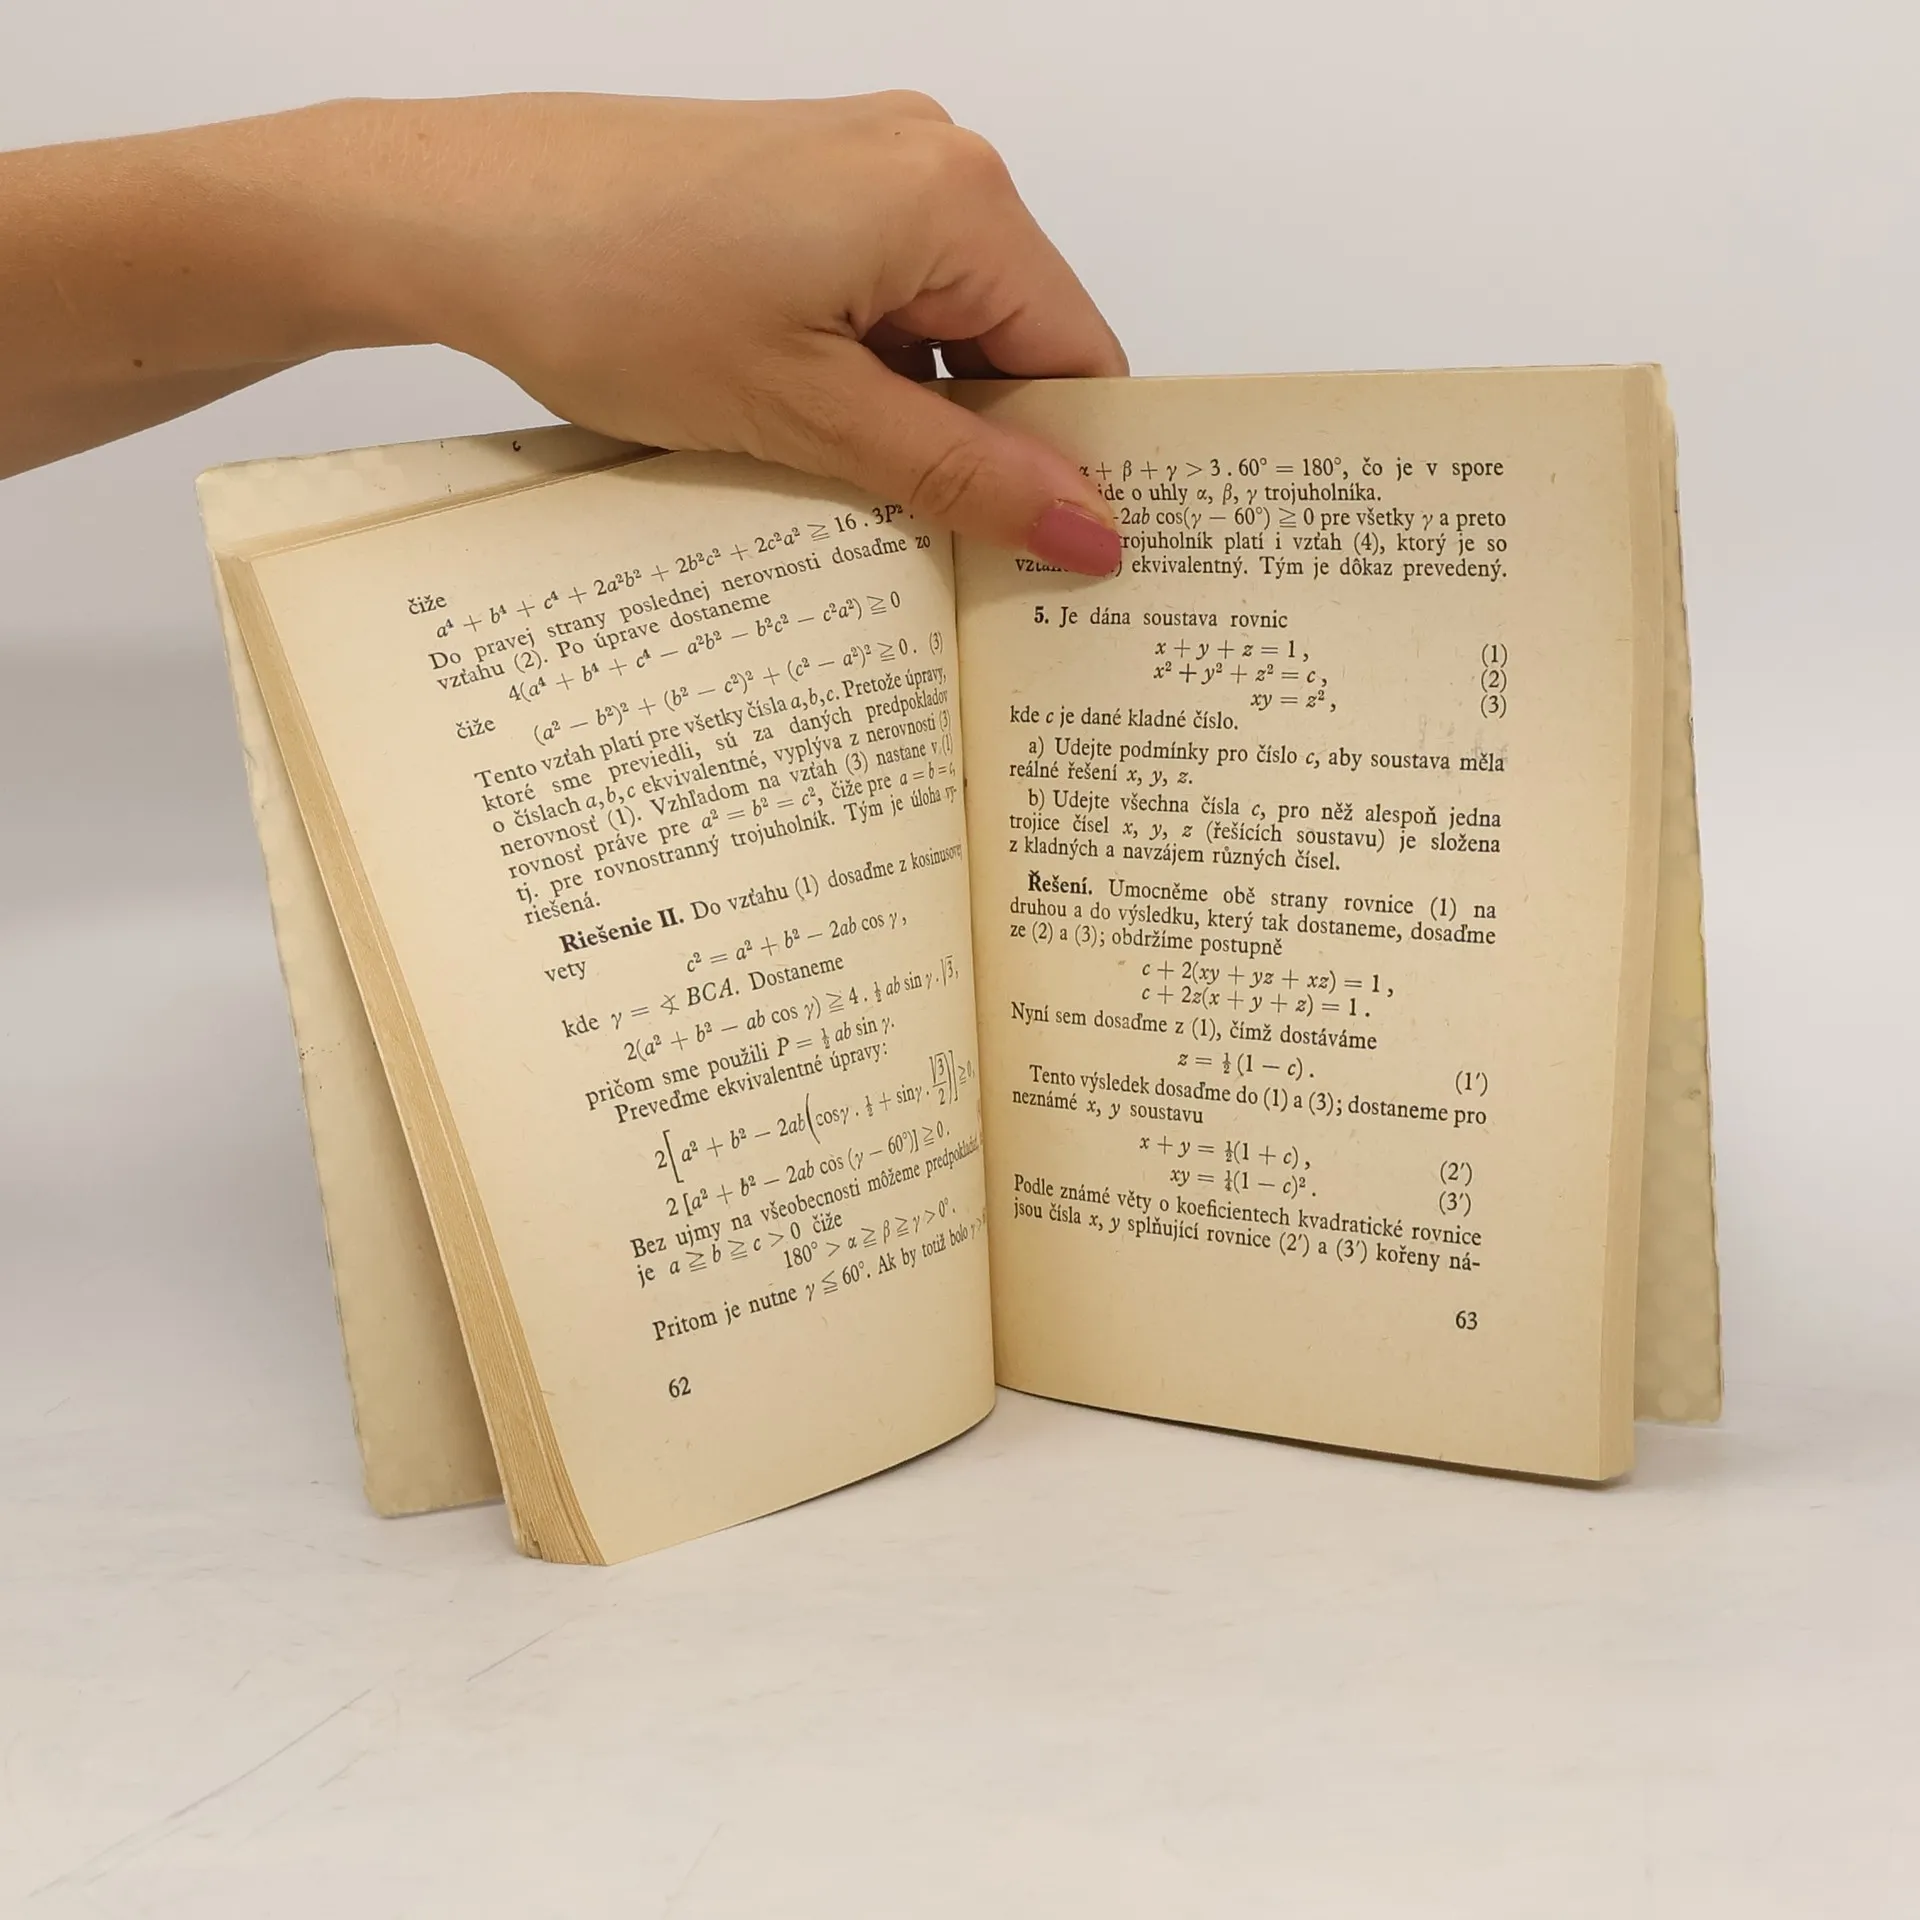 čiže
a⁴ + b⁴ + c⁴ + 2a²b² + 2b²c² + 2c²a² ≧ 16 . 3P² .
Do pravej strany poslednej nerovnosti dosaďme zo
vzťahu (2). Po úprave dostaneme
4(a⁴ + b⁴ + c⁴ — a²b² — b²c² — c²a²) ≧ 0
čiže
(a² — b²)² + (b² — c²)² + (c² — a²)² ≧ 0. (3)
Tento vzťah platí pre všetky čísla a, b, c. Pretože úpravy,
ktoré sme previedli, sú za daných predpokladov
o číslach a, b, c ekvivalentné, vyplýva z nerovnosti (3)
nerovnosť (1). Vzhľadom na vzťah (3) nastane v (1)
rovnosť práve pre a² = b² = c², čiže pre a = b = c,
tj. pre rovnostranný trojuholník. Tým je úloha vy-
riešená.
Riešenie II. Do vzťahu (1) dosaďme z kosinusovej
vety
c² = a² + b² — 2ab cos γ ,
kde γ = ∢ BCA. Dostaneme
2(a² + b² — ab cos γ) ≧ 4 . ½ ab sin γ . √3,
pričom sme použili P = ½ ab sin γ.
Preveďme ekvivalentné úpravy:
2[a² + b² — 2ab(cosγ . ½ + sinγ . √3/2)] ≧ 0,
2 [a² + b² — 2ab cos (γ — 60°)] ≧ 0.
Bez ujmy na všeobecnosti môžeme predpokladať,
je a ≧ b ≧ c > 0 čiže
180° > α ≧ β ≧ γ > 0°.
Pritom je nutne γ ≦ 60°. Ak by totiž bolo γ >
62
α + β + γ > 3 . 60° = 180°, čo je v spore
ide o uhly α, β, γ trojuholníka.
2ab cos(γ — 60°) ≧ 0 pre všetky γ a preto
trojuholník platí i vzťah (4), ktorý je so
ekvivalentný. Tým je dôkaz prevedený.
5. Je dána soustava rovnic
x + y + z = 1 , (1)
x² + y² + z² = c , (2)
xy = z² , (3)
kde c je dané kladné číslo.
a) Udejte podmínky pro číslo c, aby soustava měla
reálné řešení x, y, z.
b) Udejte všechna čísla c, pro něž alespoň jedna
trojice čísel x, y, z (řešících soustavu) je složena
z kladných a navzájem různých čísel.
Řešení. Umocněme obě strany rovnice (1) na
druhou a do výsledku, který tak dostaneme, dosaďme
ze (2) a (3); obdržíme postupně
c + 2(xy + yz + xz) = 1 ,
c + 2z(x + y + z) = 1 .
Nyní sem dosaďme z (1), čímž dostáváme
z = ½ (1 — c) . (1′)
Tento výsledek dosaďme do (1) a (3); dostaneme pro
neznámé x, y soustavu
x + y = ½(1 + c) , (2′)
xy = ¼(1 — c)² . (3′)
Podle známé věty o koeficientech kvadratické rovnice
jsou čísla x, y splňující rovnice (2′) a (3′) kořeny ná-
63